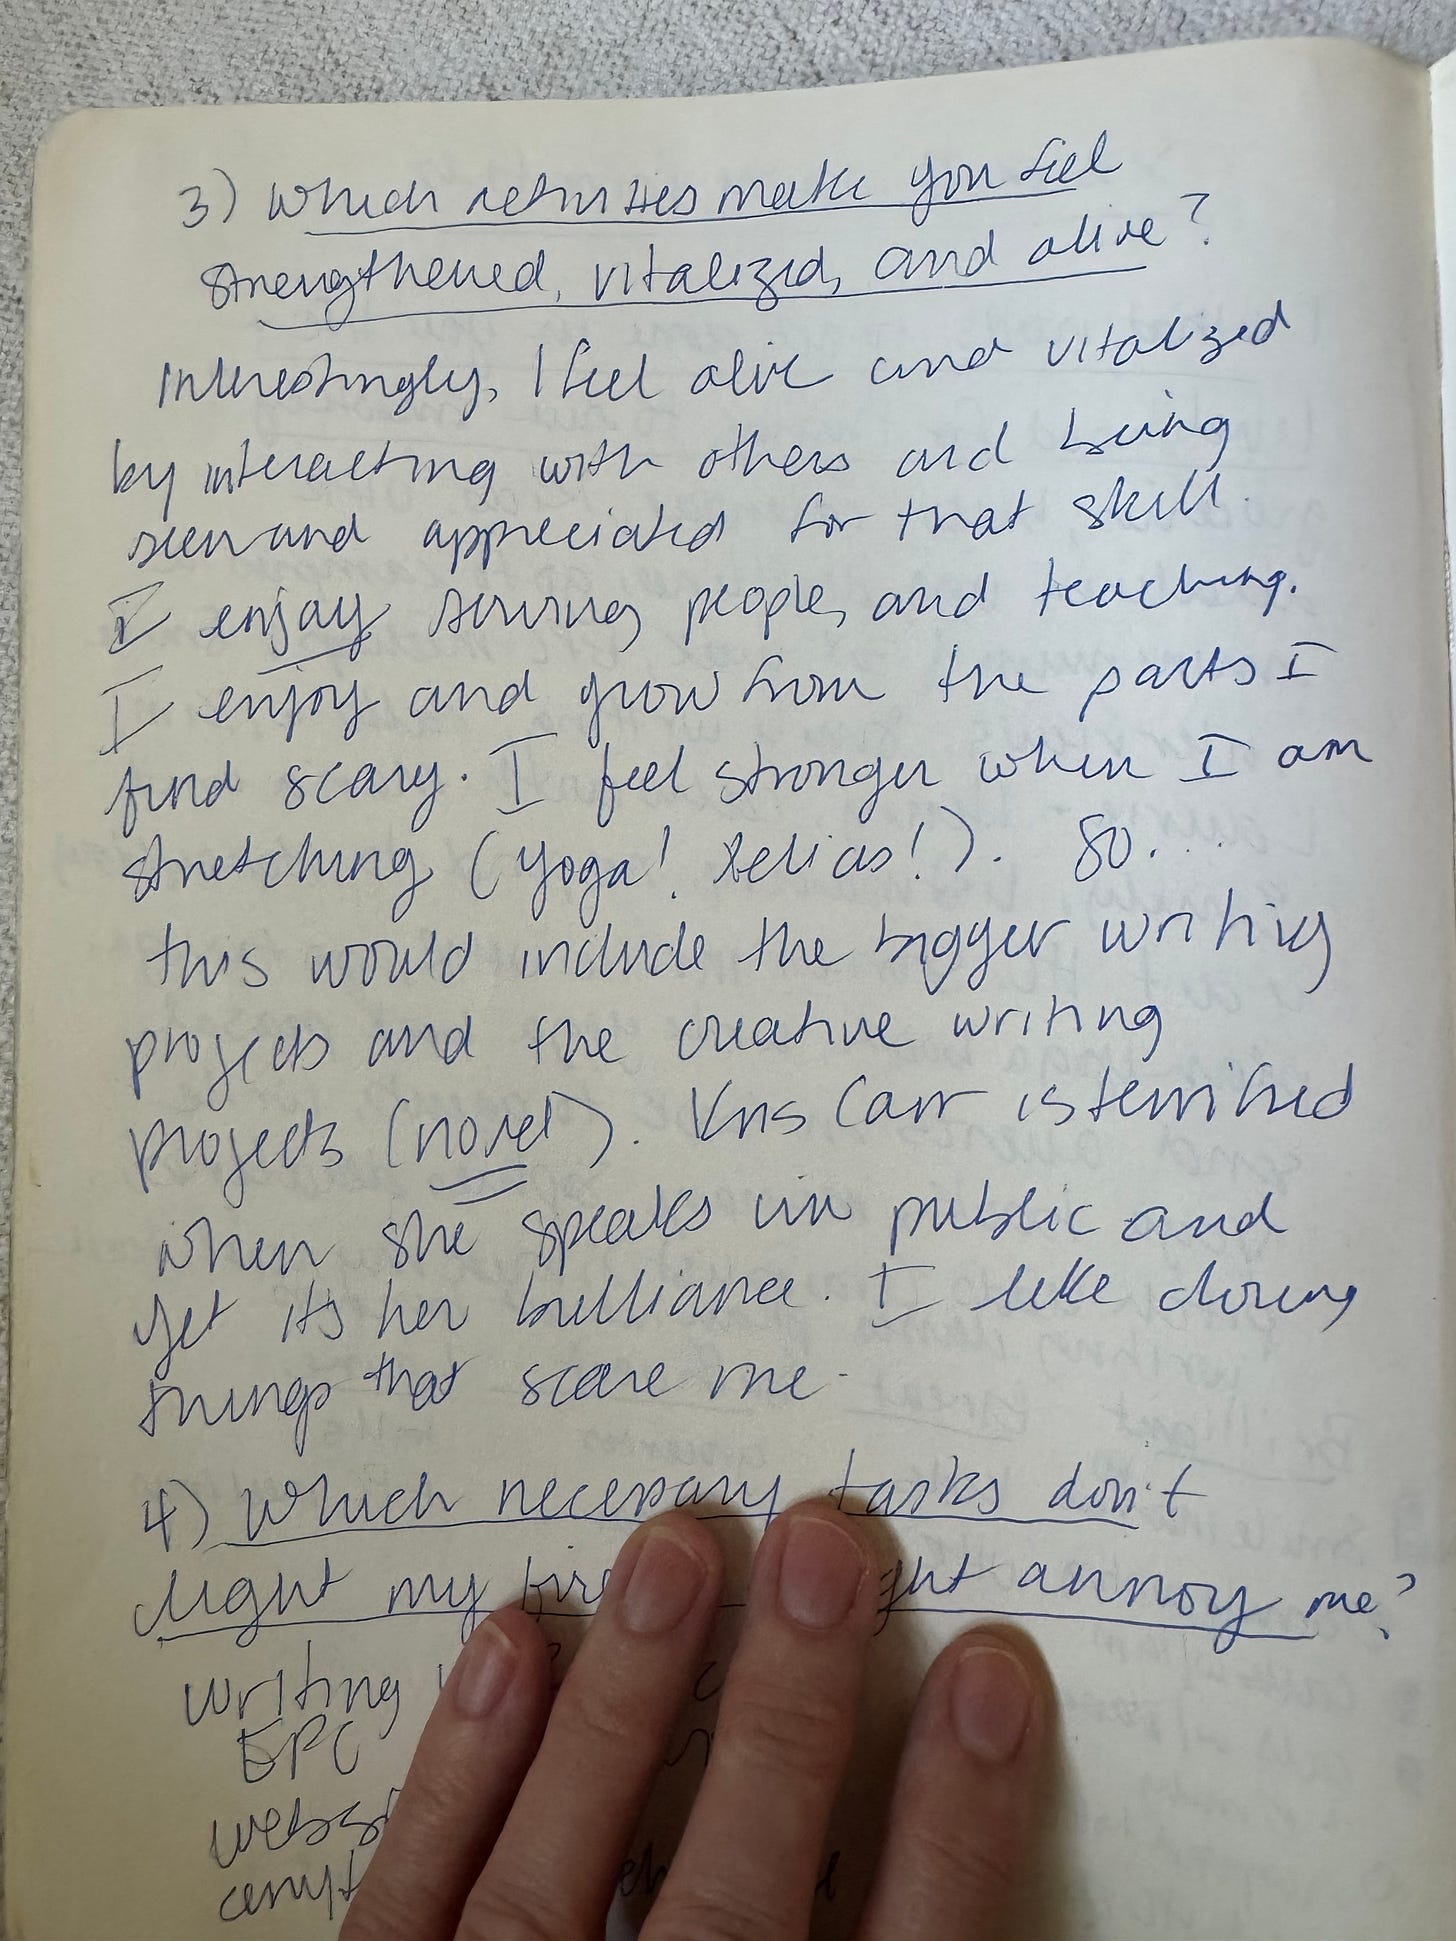 3) Which activities make you feel
strengthened, vitalized, and alive?
Interestingly, I feel alive and vitalized
by interacting with others and being
seen and appreciated for that skill.
I enjoy serving people, and teaching.
I enjoy and grow from the parts I
find scary. I feel stronger when I am
stretching (yoga! Helias!). So...
this would include the bigger writing
projects and the creative writing
projects (novel). Kris Carr is terrified
when she speaks in public and
yet it's her brilliance. I like doing
things that scare me.
4) Which necessary tasks don't
light my fire annoy me?
Writing
EPC